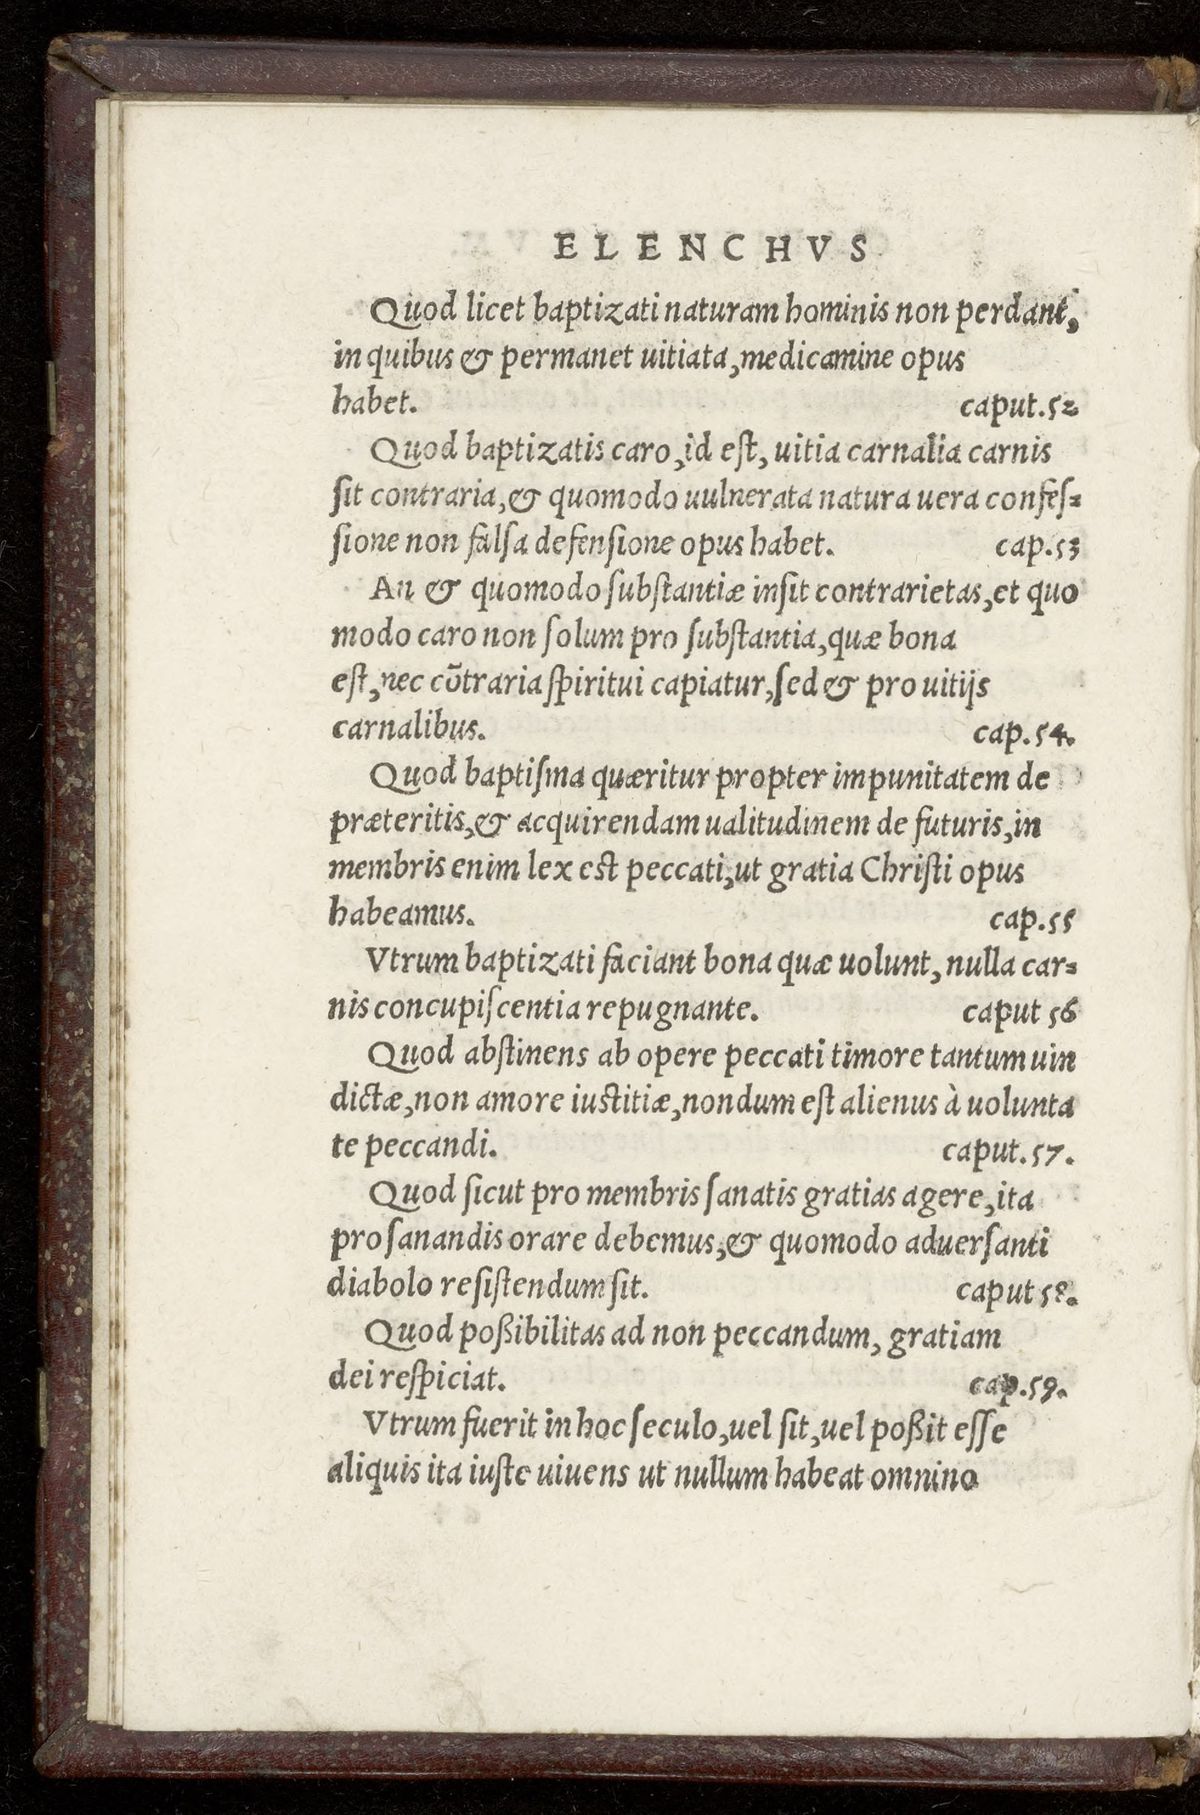 ELENCHVS
Quod licet baptizati naturam hominis non perdant,
in quibus & permanet uitiata, medicamine opus
habet. caput.52
Quod baptizatis caro, id eſt, uitia carnalia carnis
ſit contraria, & quomodo uulnerata natura uera confeſ-
ſione non falſa defenſione opus habet. cap.53
An & quomodo ſubſtantiæ inſit contrarietas, et quo
modo caro non ſolum pro ſubſtantia, quæ bona
eſt, nec cōtraria ſpiritui capiatur, ſed & pro uitijs
carnalibus. cap.54.
Quod baptiſma quæritur propter impunitatem de
præteritis, & acquirendam ualitudinem de futuris, in
membris enim lex est peccati, ut gratia Chriſti opus
habeamus. cap.55
Vtrum baptizati faciant bona quæ uolunt, nulla car-
nis concupiſcentia repugnante. caput 56
Quod abſtinens ab opere peccati timore tantum uin
dictæ, non amore iustitiæ, nondum eſt alienus à uolunta
te peccandi. caput.57.
Quod ſicut pro membris ſanatis gratias agere, ita
pro ſanandis orare debemus, & quomodo aduerſanti
diabolo reſiſtendum ſit. caput 58.
Quod poßibilitas ad non peccandum, gratiam
dei reſpiciat. cap.59.
Vtrum fuerit in hoc ſeculo, uel ſit, uel poßit eſſe
aliquis ita iuſte uiuens ut nullum habeat omnino